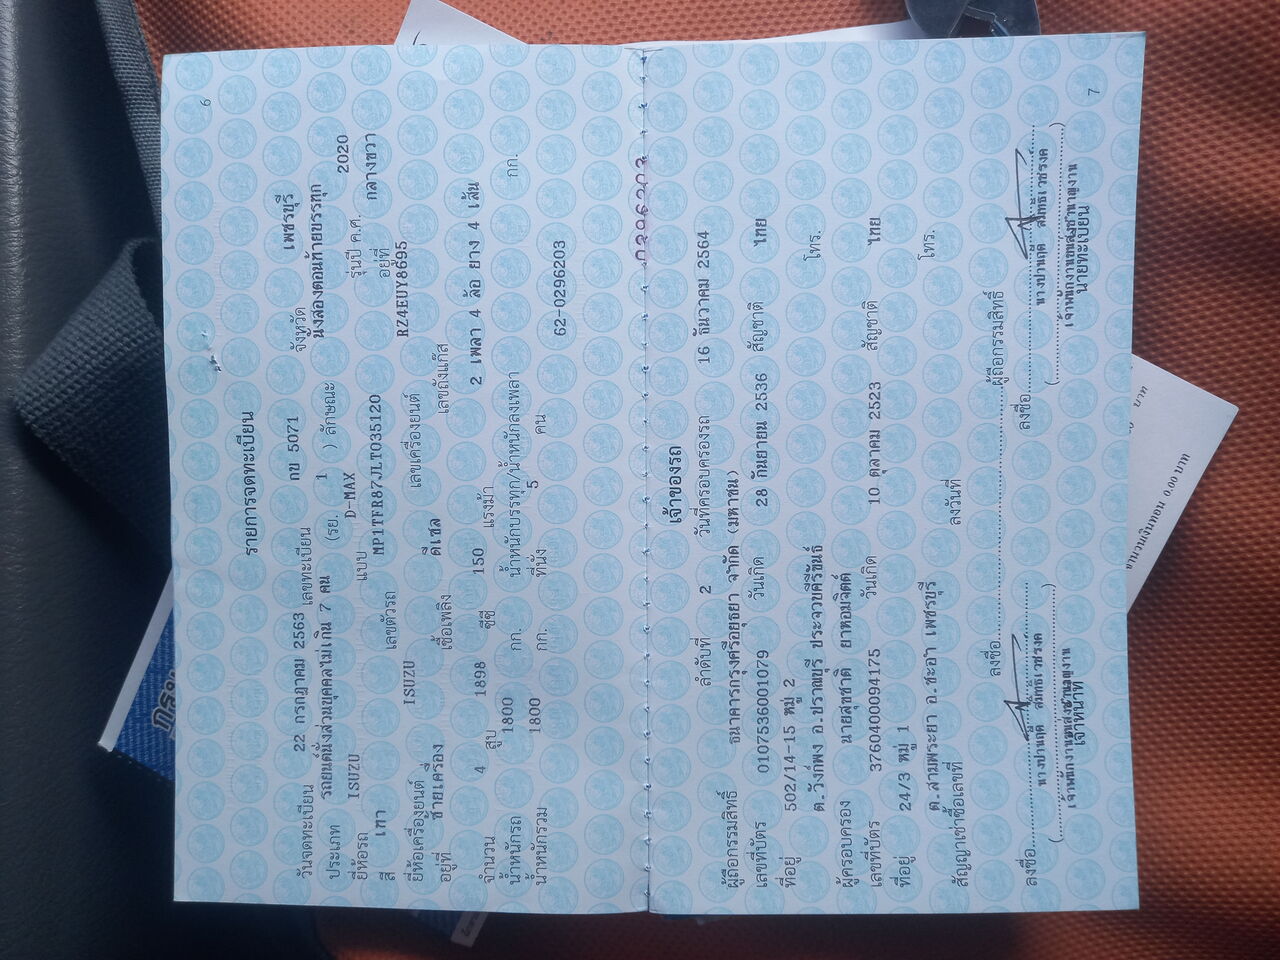 6
รายการจดทะเบียน
วันจดทะเบียน 22 กรกฎาคม 2563 เลขทะเบียน กข 5071 จังหวัด เพชรบุรี
ประเภท รถยนต์นั่งส่วนบุคคลไม่เกิน 7 คน (รย. 1 ) ลักษณะ นั่งสองตอนท้ายบรรทุก
ยี่ห้อรถ ISUZU แบบ D-MAX รุ่นปี ค.ศ. 2020
สี เทา เลขตัวรถ MP1TFR87JLT035120 อยู่ที่ กลางขวา
ยี่ห้อเครื่องยนต์ ISUZU เลขเครื่องยนต์ RZ4EUY8695
อยู่ที่ ซ้ายเครื่อง เชื้อเพลิง ดีเซล เลขถังแก๊ส
จำนวน 4 สูบ 1898 ซีซี 150 แรงม้า 2 เพลา 4 ล้อ ยาง 4 เส้น
น้ำหนักรถ 1800 กก. น้ำหนักบรรทุก/น้ำหนักลงเพลา กก.
น้ำหนักรวม 1800 กก. ที่นั่ง 5 คน 62-0296203
เจ้าของรถ
ลำดับที่ 2 วันที่ครอบครองรถ 16 ธันวาคม 2564
ผู้ถือกรรมสิทธิ์ ธนาคารกรุงศรีอยุธยา จำกัด (มหาชน)
เลขที่บัตร 0107536001079 วันเกิด 28 กันยายน 2536 สัญชาติ ไทย
ที่อยู่ 502/14-15 หมู่ 2 โทร.
ต.วังก์พง อ.ปราณบุรี ประจวบคีรีขันธ์
ผู้ครอบครอง นายสุชชาติ ยาหอมจิตต์
เลขที่บัตร 3760400094175 วันเกิด 10 ตุลาคม 2523 สัญชาติ ไทย
ที่อยู่ 24/3 หมู่ 1 โทร.
ต.สามพระยา อ.ชะอำ เพชรบุรี
สัญญาเช่าซื้อเลขที่ ลงวันที่
ลงชื่อ ผู้ถือกรรมสิทธิ์
ลงชื่อ ลงชื่อ
เจ้าพนักงานขนส่งชำนาญงาน เจ้าพนักงานขนส่งชำนาญงาน
เจ้าหน้าที่ นายทะเบียน
7
จำนวนเงินทอน 0.00 บาท